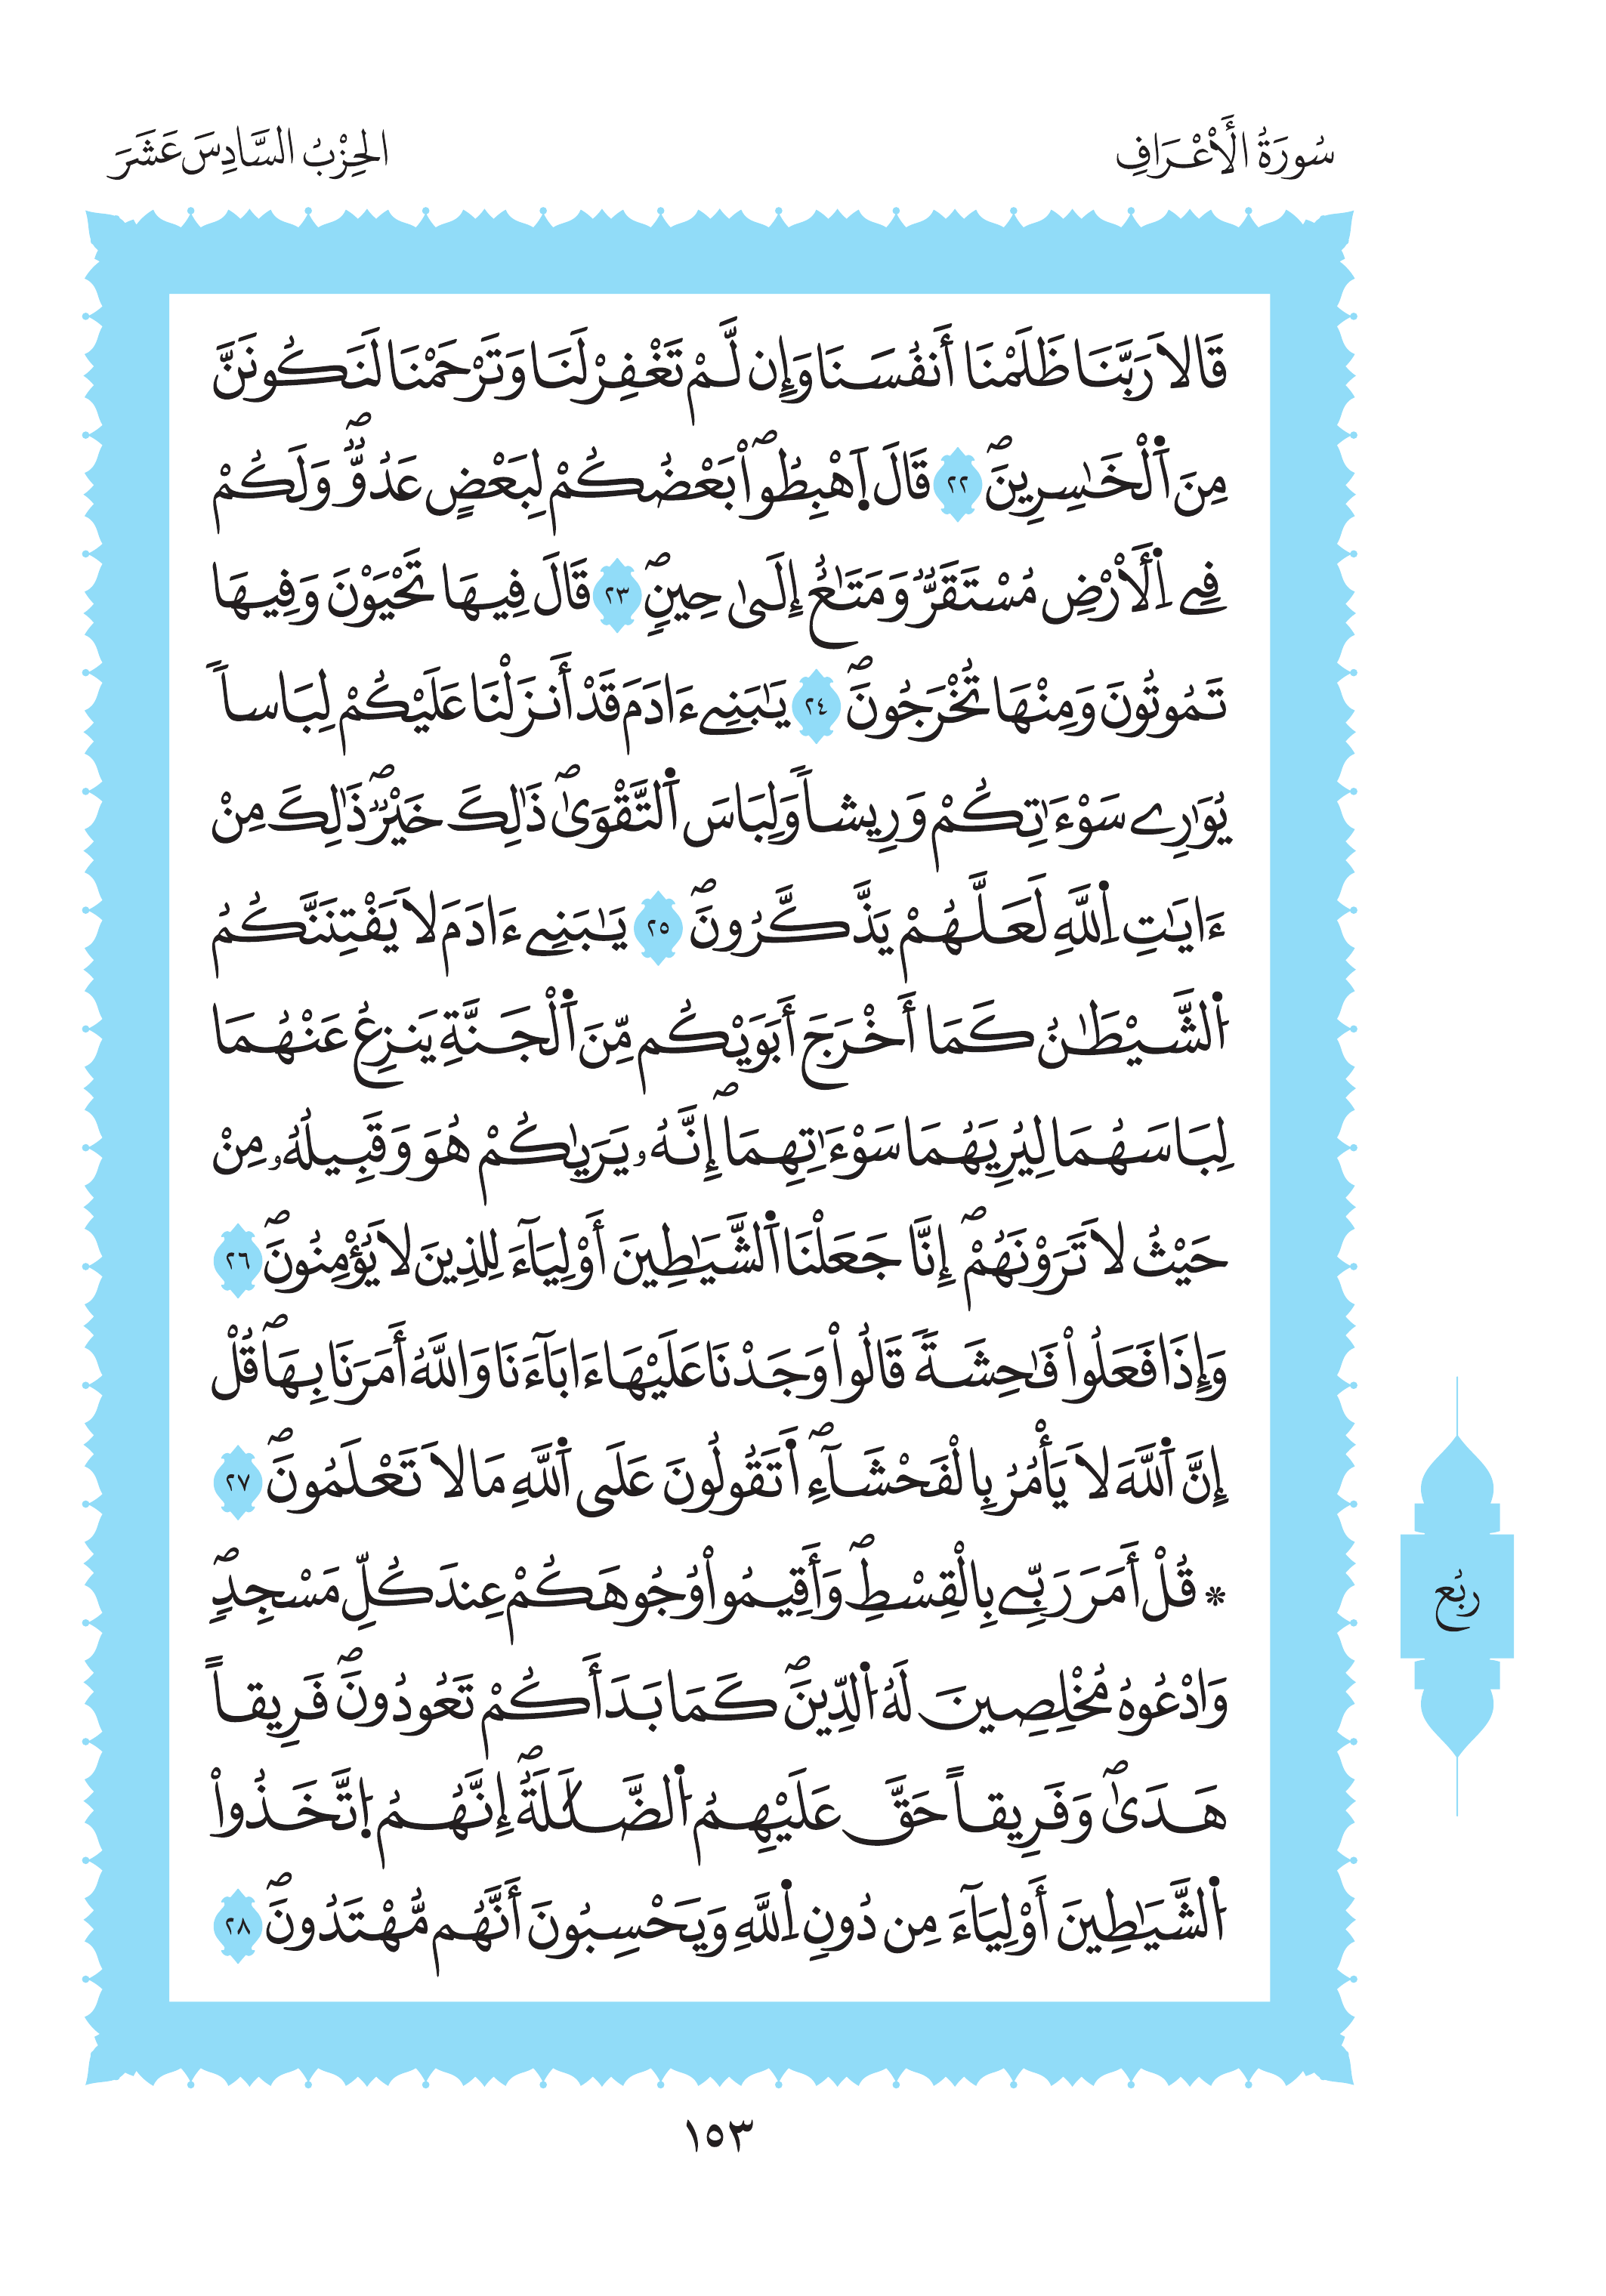 سُورَةُ الْأَعْرَافِ
الحِزْبُ السَّادِسَ عَشَرَ
قَالَا رَبَّنَا ظَلَمْنَا أَنفُسَنَا وَإِن لَّمْ تَغْفِرْ لَنَا وَتَرْحَمْنَا لَنَكُونَنَّ
مِنَ اَ۬لْخَٰسِرِينَۖ ٢٢ قَالَ اَ۪هْبِطُواْۖ بَعْضُكُمْ لِبَعْضٍ عَدُوّٞۖ وَلَكُمْ
فِے اِ۬لَارْضِ مُسْتَقَرّٞ وَمَتَٰعٌ إِلَىٰ حِينٖۖ ٢٣ قَالَ فِيهَا تَحْيَوْنَ وَفِيهَا
تَمُوتُونَ وَمِنْهَا تُخْرَجُونَۖ ٢٤ يَٰبَنِے ءَادَمَ قَدْ أَنزَلْنَا عَلَيْكُمْ لِبَاساٗ
يُوَٰرِے سَوْءَٰتِكُمْ وَرِيشاٗ وَلِبَاسَ اَ۬لتَّقْوَىٰۖ ذَٰلِكَ خَيْرٞۖ ذَٰلِكَ مِنْ
ءَايَٰتِ اِ۬للَّهِ لَعَلَّهُمْ يَذَّكَّرُونَۖ ٢٥ يَٰبَنِے ءَادَمَ لَا يَفْتِنَنَّكُمُ
اُ۬لشَّيْطَٰنُ كَمَا أَخْرَجَ أَبَوَيْكُم مِّنَ اَ۬لْجَنَّةِ يَنزِعُ عَنْهُمَا
لِبَاسَهُمَا لِيُرِيَهُمَا سَوْءَٰتِهِمَاۖ إِنَّهُۥ يَرَيٰكُمْ هُوَ وَقَبِيلُهُۥ مِنْ
حَيْثُ لَا تَرَوْنَهُمْۖ إِنَّا جَعَلْنَا اَ۬لشَّيَٰطِينَ أَوْلِيَآءَ لِلذِينَ لَا يُؤْمِنُونَۖ ٢٦
وَإِذَا فَعَلُواْ فَٰحِشَةٗ قَالُواْ وَجَدْنَا عَلَيْهَا ءَابَآءَنَا وَاللَّهُ أَمَرَنَا بِهَاۖ قُلْ
إِنَّ اَ۬للَّهَ لَا يَأْمُرُ بِالْفَحْشَآءِۖ اَ۬تَقُولُونَ عَلَى اَ۬للَّهِ مَا لَا تَعْلَمُونَۖ ٢٧
* قُلْ أَمَرَ رَبِّے بِالْقِسْطِۖ وَأَقِيمُواْ وُجُوهَكُمْ عِندَ كُلِّ مَسْجِدٖۖ
وَادْعُوهُ مُخْلِصِينَ لَهُ اُ۬لدِّينَۖ كَمَا بَدَأَكُمْ تَعُودُونَۖ فَرِيقاً
هَدَىٰۖ وَفَرِيقاً حَقَّ عَلَيْهِمُ اُ۬لضَّلَٰلَةُۖ إِنَّهُمُ اُ۪تَّخَذُواْ
اُ۬لشَّيَٰطِينَ أَوْلِيَآءَ مِن دُونِ اِ۬للَّهِ وَيَحْسِبُونَ أَنَّهُم مُّهْتَدُونَۖ ٢٨
رُبُع
١٥٣